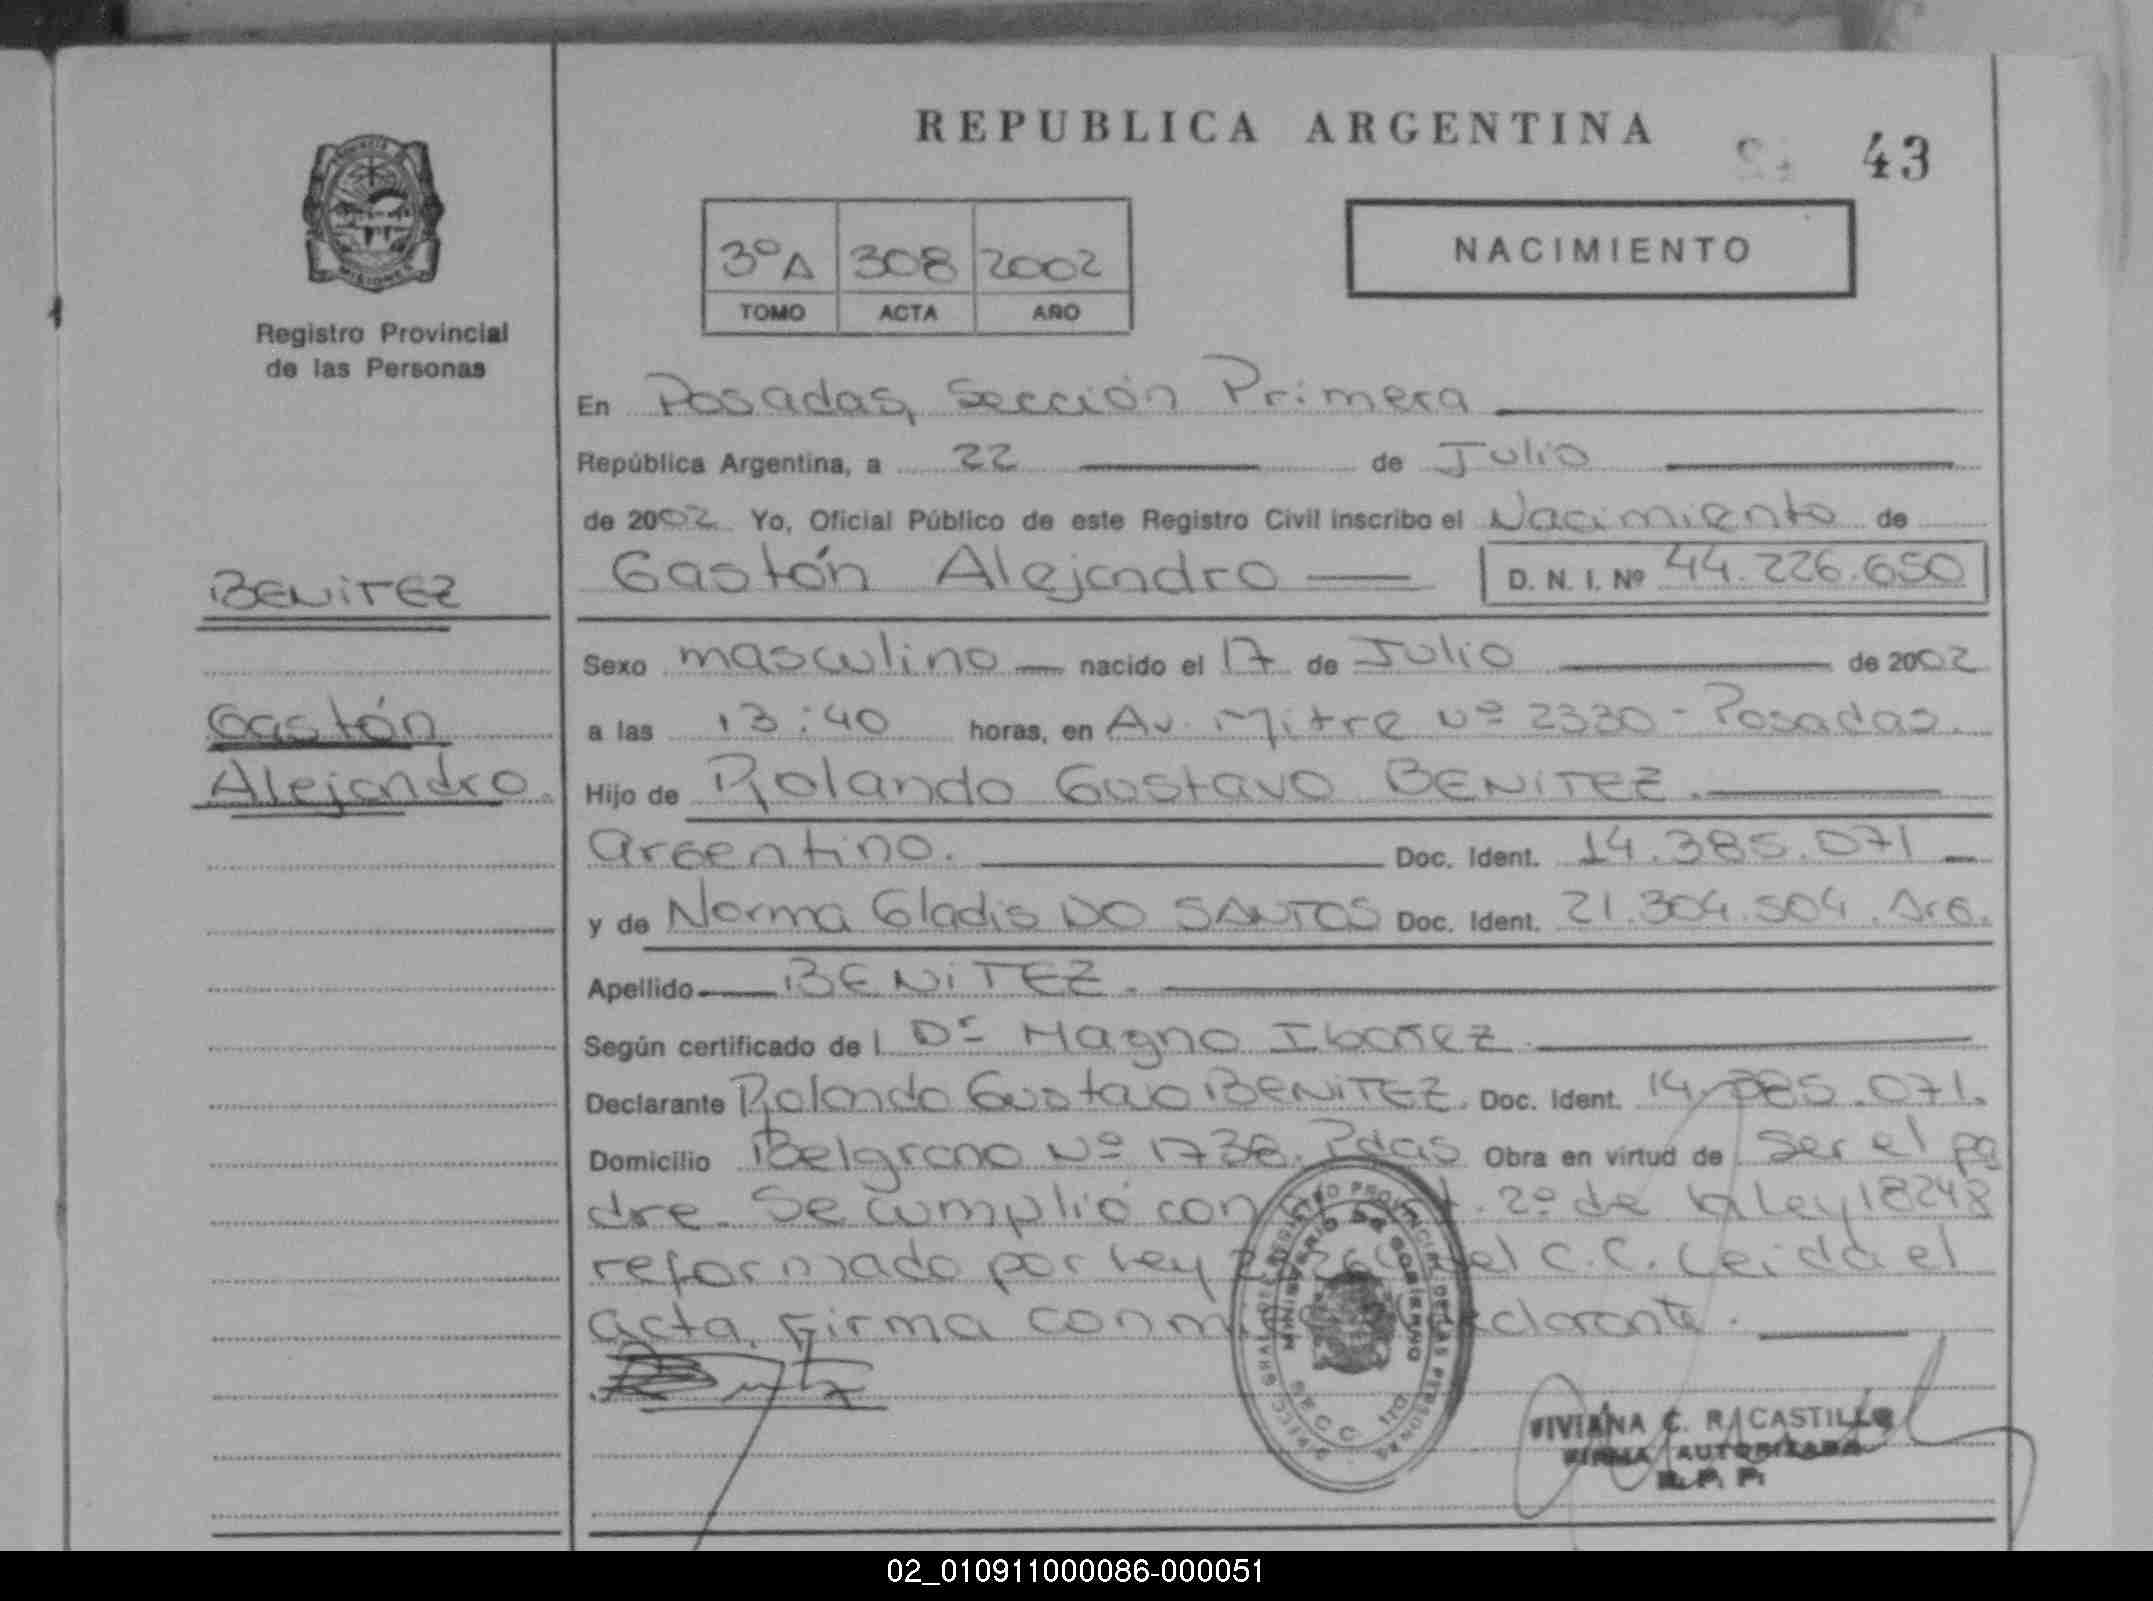 REPUBLICA ARGENTINA
43
MISIONES
Registro Provincial
de las Personas
3º A 308 2002
TOMO ACTA AÑO
NACIMIENTO
En Posadas, Sección Primera
República Argentina, a 22 de Julio
de 2002 Yo, Oficial Público de este Registro Civil inscribo el Nacimiento de
Gastón Alejandro D. N. I. Nº 44.226.650
BENITEZ
Gastón
Alejandro.
Sexo masculino nacido el 17 de Julio de 2002
a las 13:40 horas, en Av. Mitre Nº 2330 - Posadas.
Hijo de Rolando Gustavo BENITEZ.
argentino. Doc. Ident. 14.385.071
y de Norma Gladis DO SANTOS Doc. Ident. 21.304.504. Arg.
Apellido BENITEZ.
Según certificado de l Dr Magno Ibañez.
Declarante Rolando Gustavo BENITEZ. Doc. Ident. 14.385.071.
Domicilio Belgrano Nº 1738. Pdas Obra en virtud de ser el pa
dre. Se cumplió con 2º de la ley 18248
reformado por Ley del C.C. Leida el
acta, firma conm clarante.
MINISTERIO DE GOBIERNO
VIVIANA C. R. CASTILLO
FIRMA AUTORIZADA
R. P. P.
02_010911000086-000051